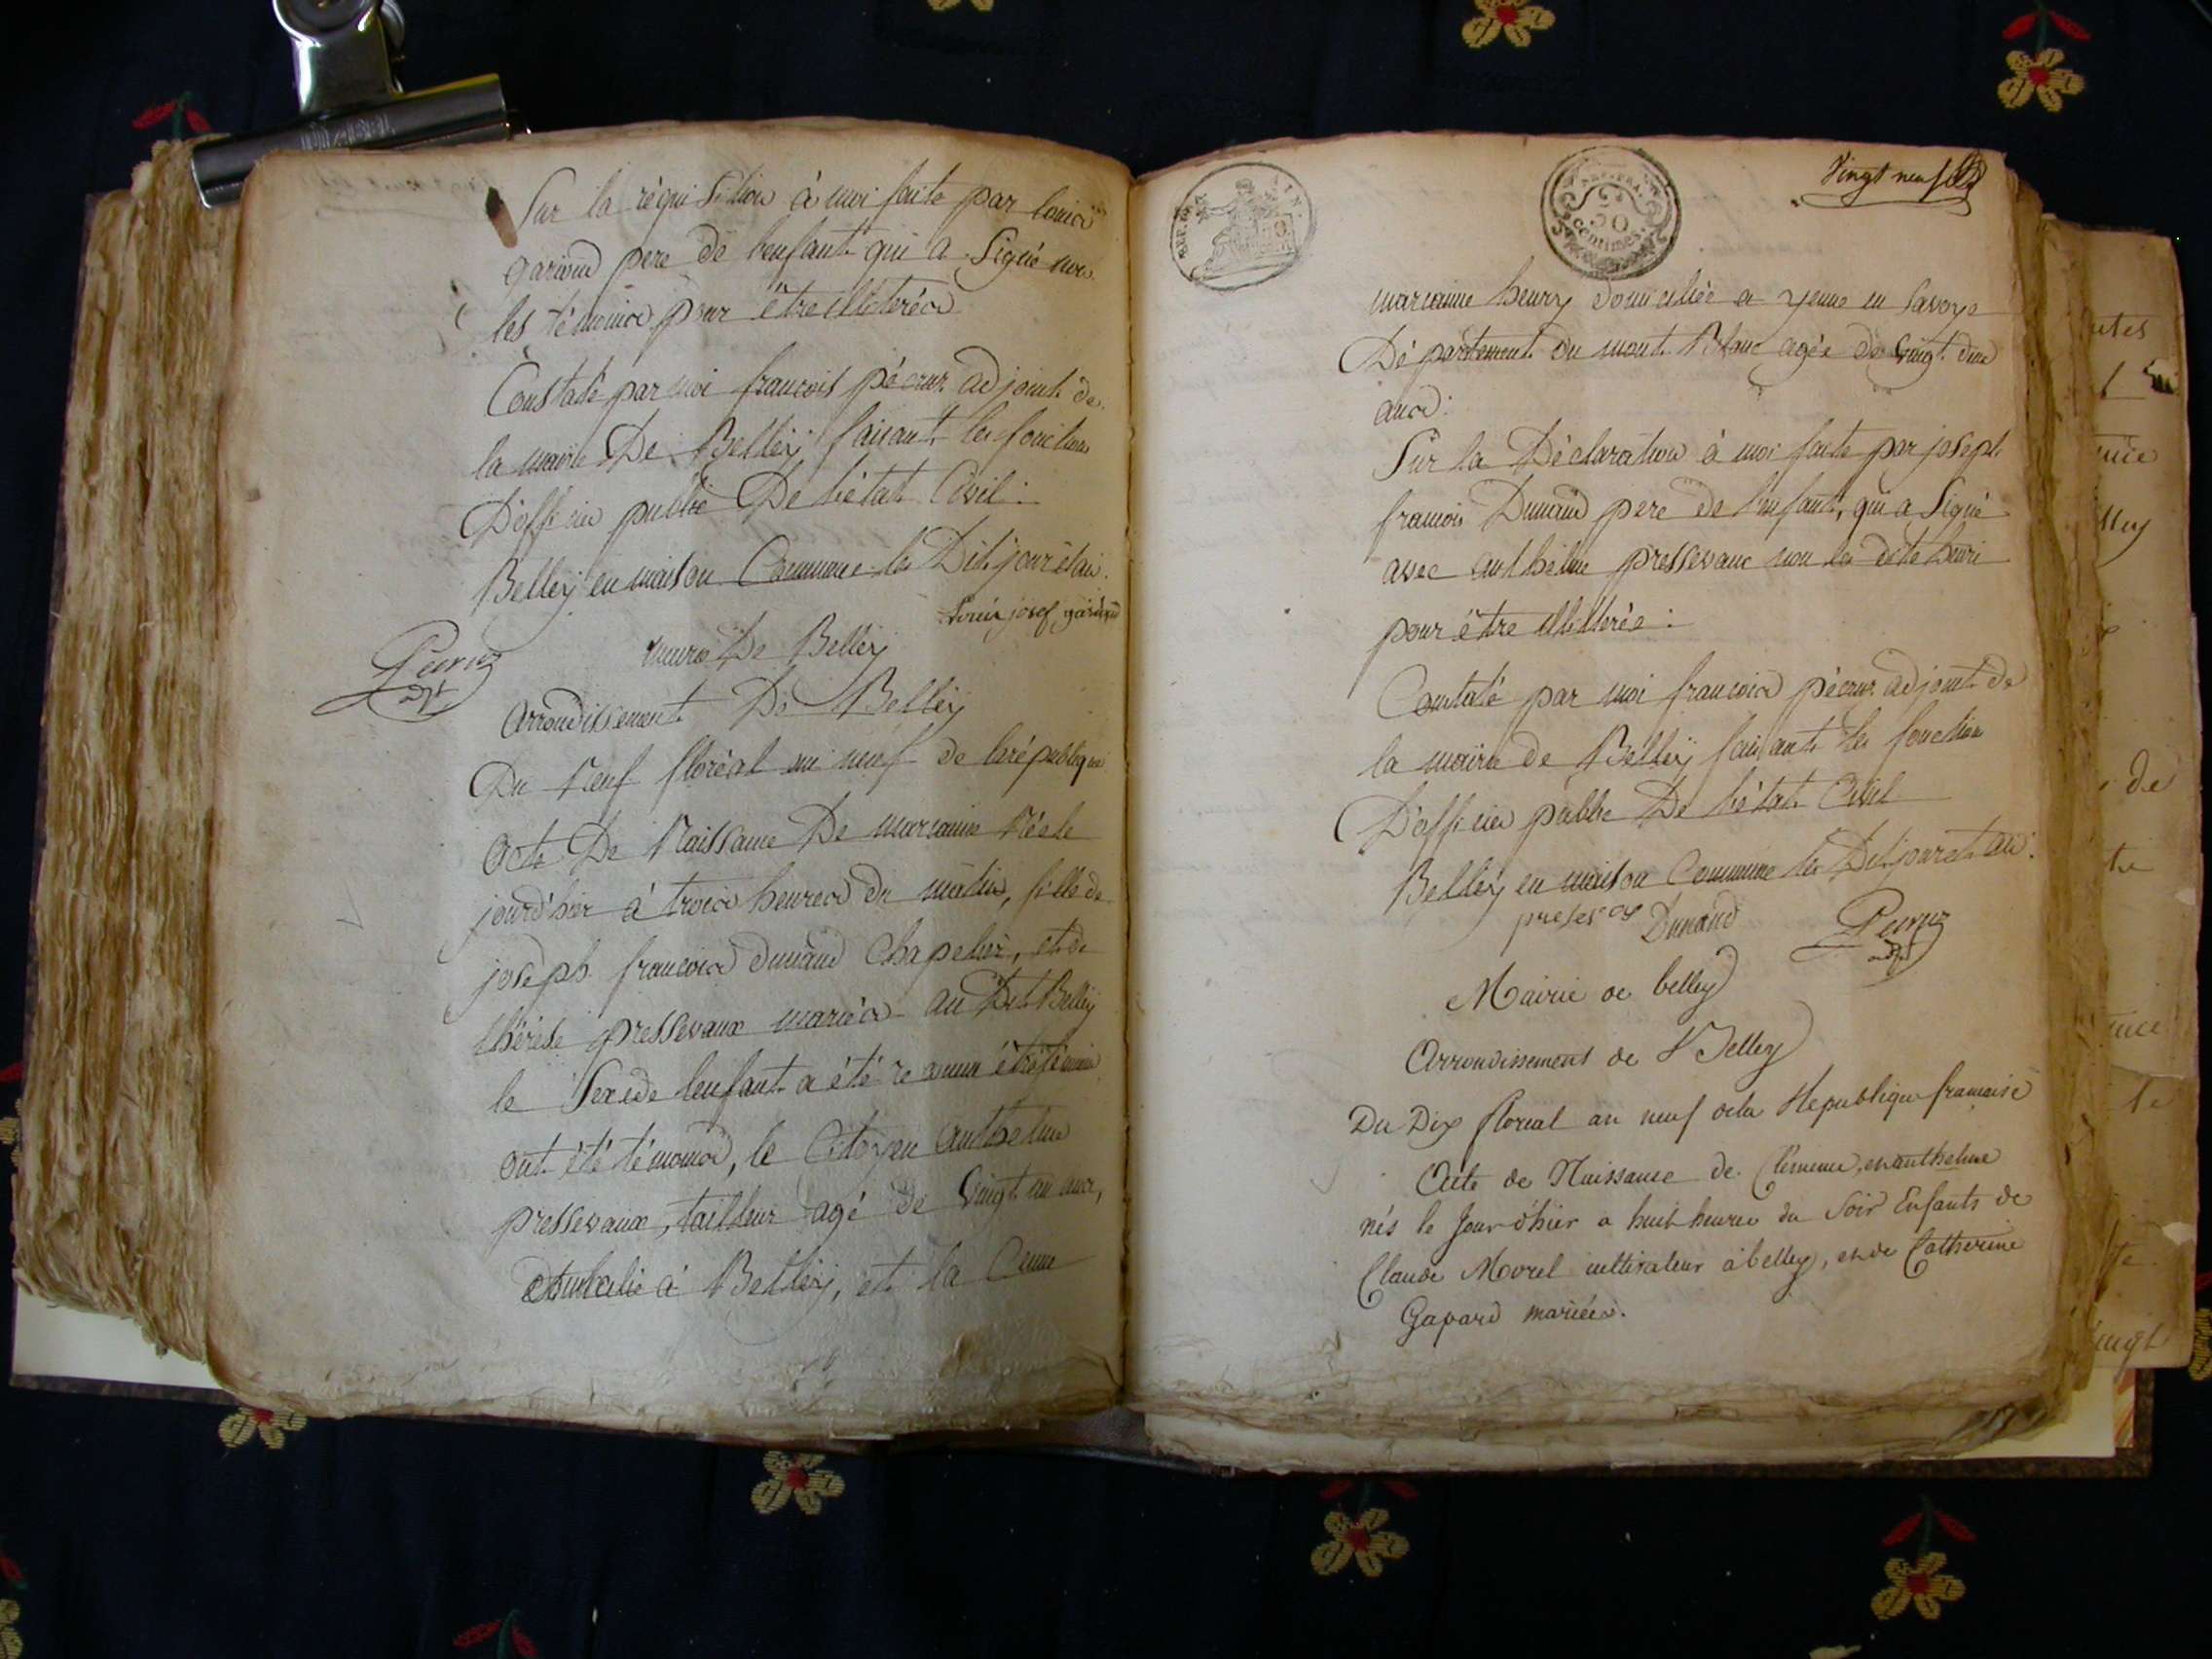 Sur la réquisition à moi faite par louis
garioud pere de lenfant qui a Signé non
les témoins pour être illiterés
Constaté par moi francois pécruz adjoint de
la mairie De Belley faisant les fonctions
D'officier public De l'état Civil :
Belley en maison Commune les Dit jour et an.
louis josef garioud
Pecruz
adjt
mairie De Belley
arrondissement De Belley
Du Neuf floréal an neuf de la république
acte De Naissance De marianne Née le
jourd'hier à trois heures du matin, fille de
joseph francois dunand Chapelier, et de
thérèse pressevaux mariés au Dit Belley
le Sexe de lenfant a été reconnu être féminin
ont été témoins, le Citoyen anthelme
pressevaux, tailleur agé de vingt un ans,
domicilié à Belley, et la Cenne
REP. FRA. AIN.
REP. FRA.
50
centimes.
Vingt neuf
marianne henry domiciliée a yenne en Savoye
Département du mont Blanc agée de vingt deux
ans :
Sur la Déclaration à moi faite par joseph
francois Dunand pere de l'enfant, qui a Signé
avec anthelme pressevaux non la dite henri
pour être illitérée :
Constaté par moi francois pécruz adjoint de
la mairie de Belley faisant les fonction
D'officier public De l'état Civil
Belley en maison Commune les Dit jour et an.
Dunand
Pecruz
adjt
Mairie de belley
Arrondissement de Belley
Du Dix floréal an neuf de la Republique francaise
Acte de Naissance de Clemence, et anthelme
nés le Jour d'hier a huit heures du Soir Enfants de
Claude Morel cultivateur à belley, et de Catherine
Gapard mariés.
utes
de
te
vingt